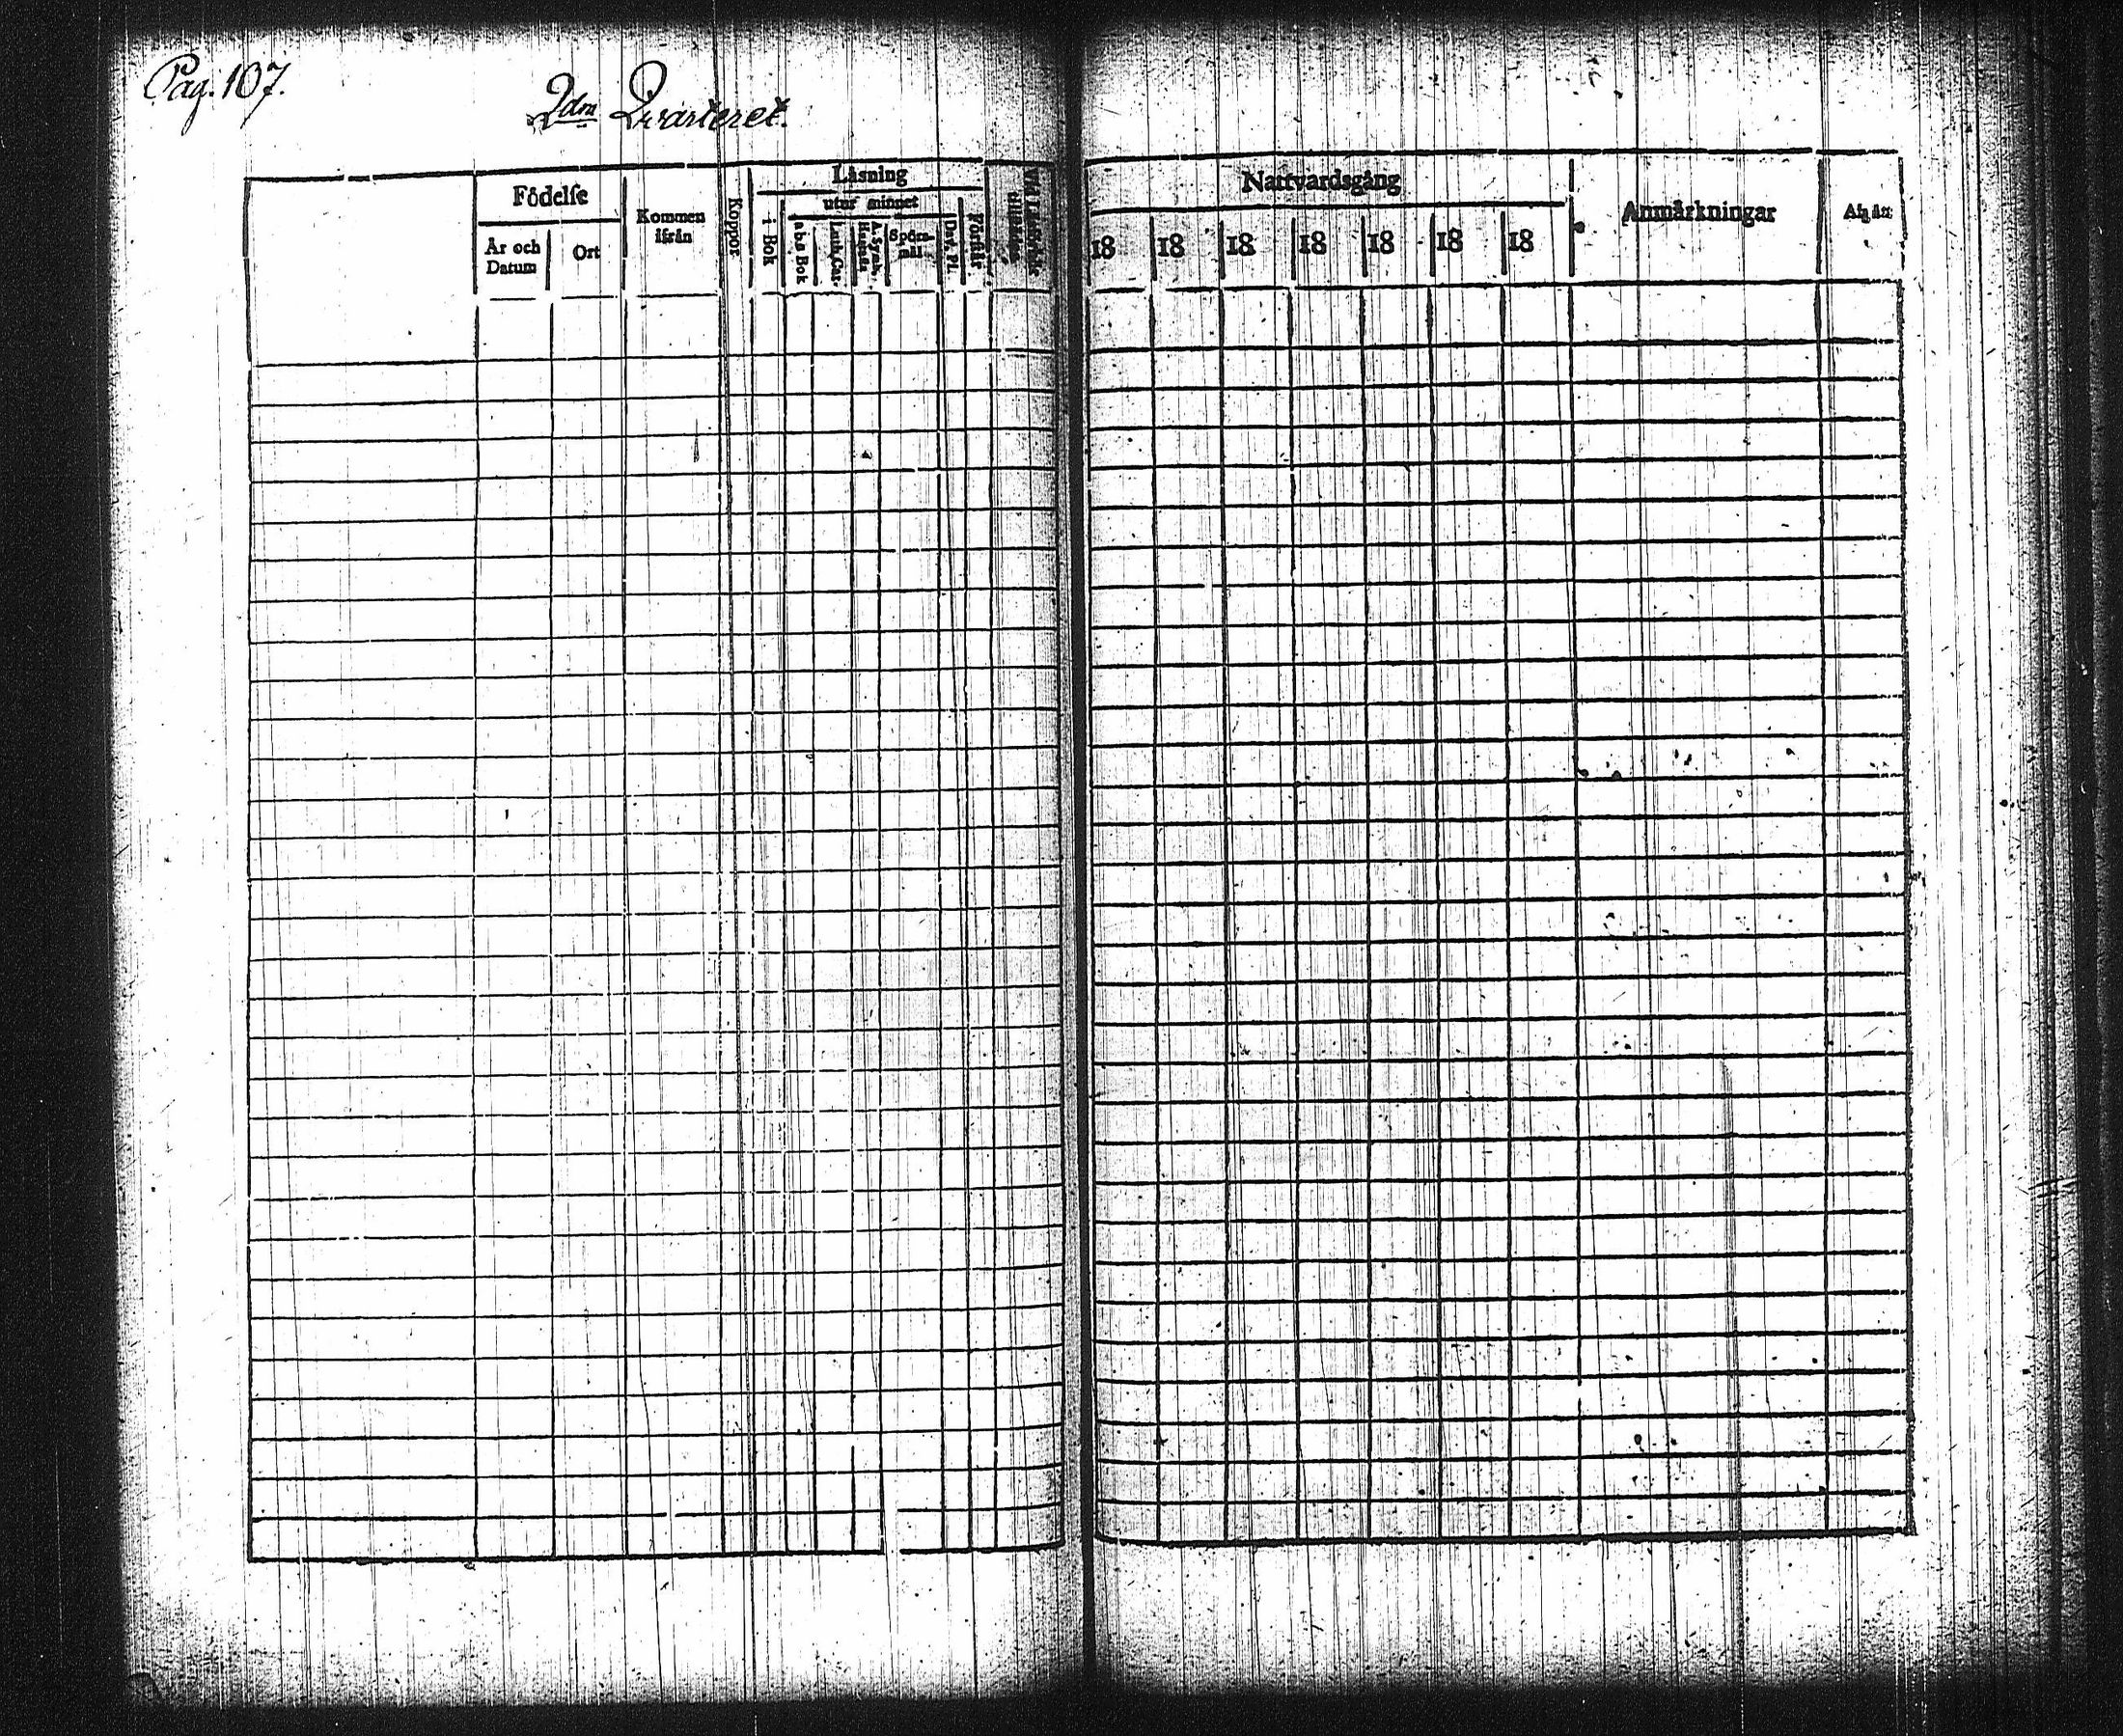 Pag. 107.
2dra Qvarteret.
Födelse
År och Datum
Ort
Kommen ifrån
Koppor
Läsning
i Bok
utur minnet
abc Bok
Luth. Cat.
A. Symb.
Spörs-
mål
Dav. Ps.
Förstår
Nattvardsgång
18 18 18 18 18 18 18
Anmärkningar